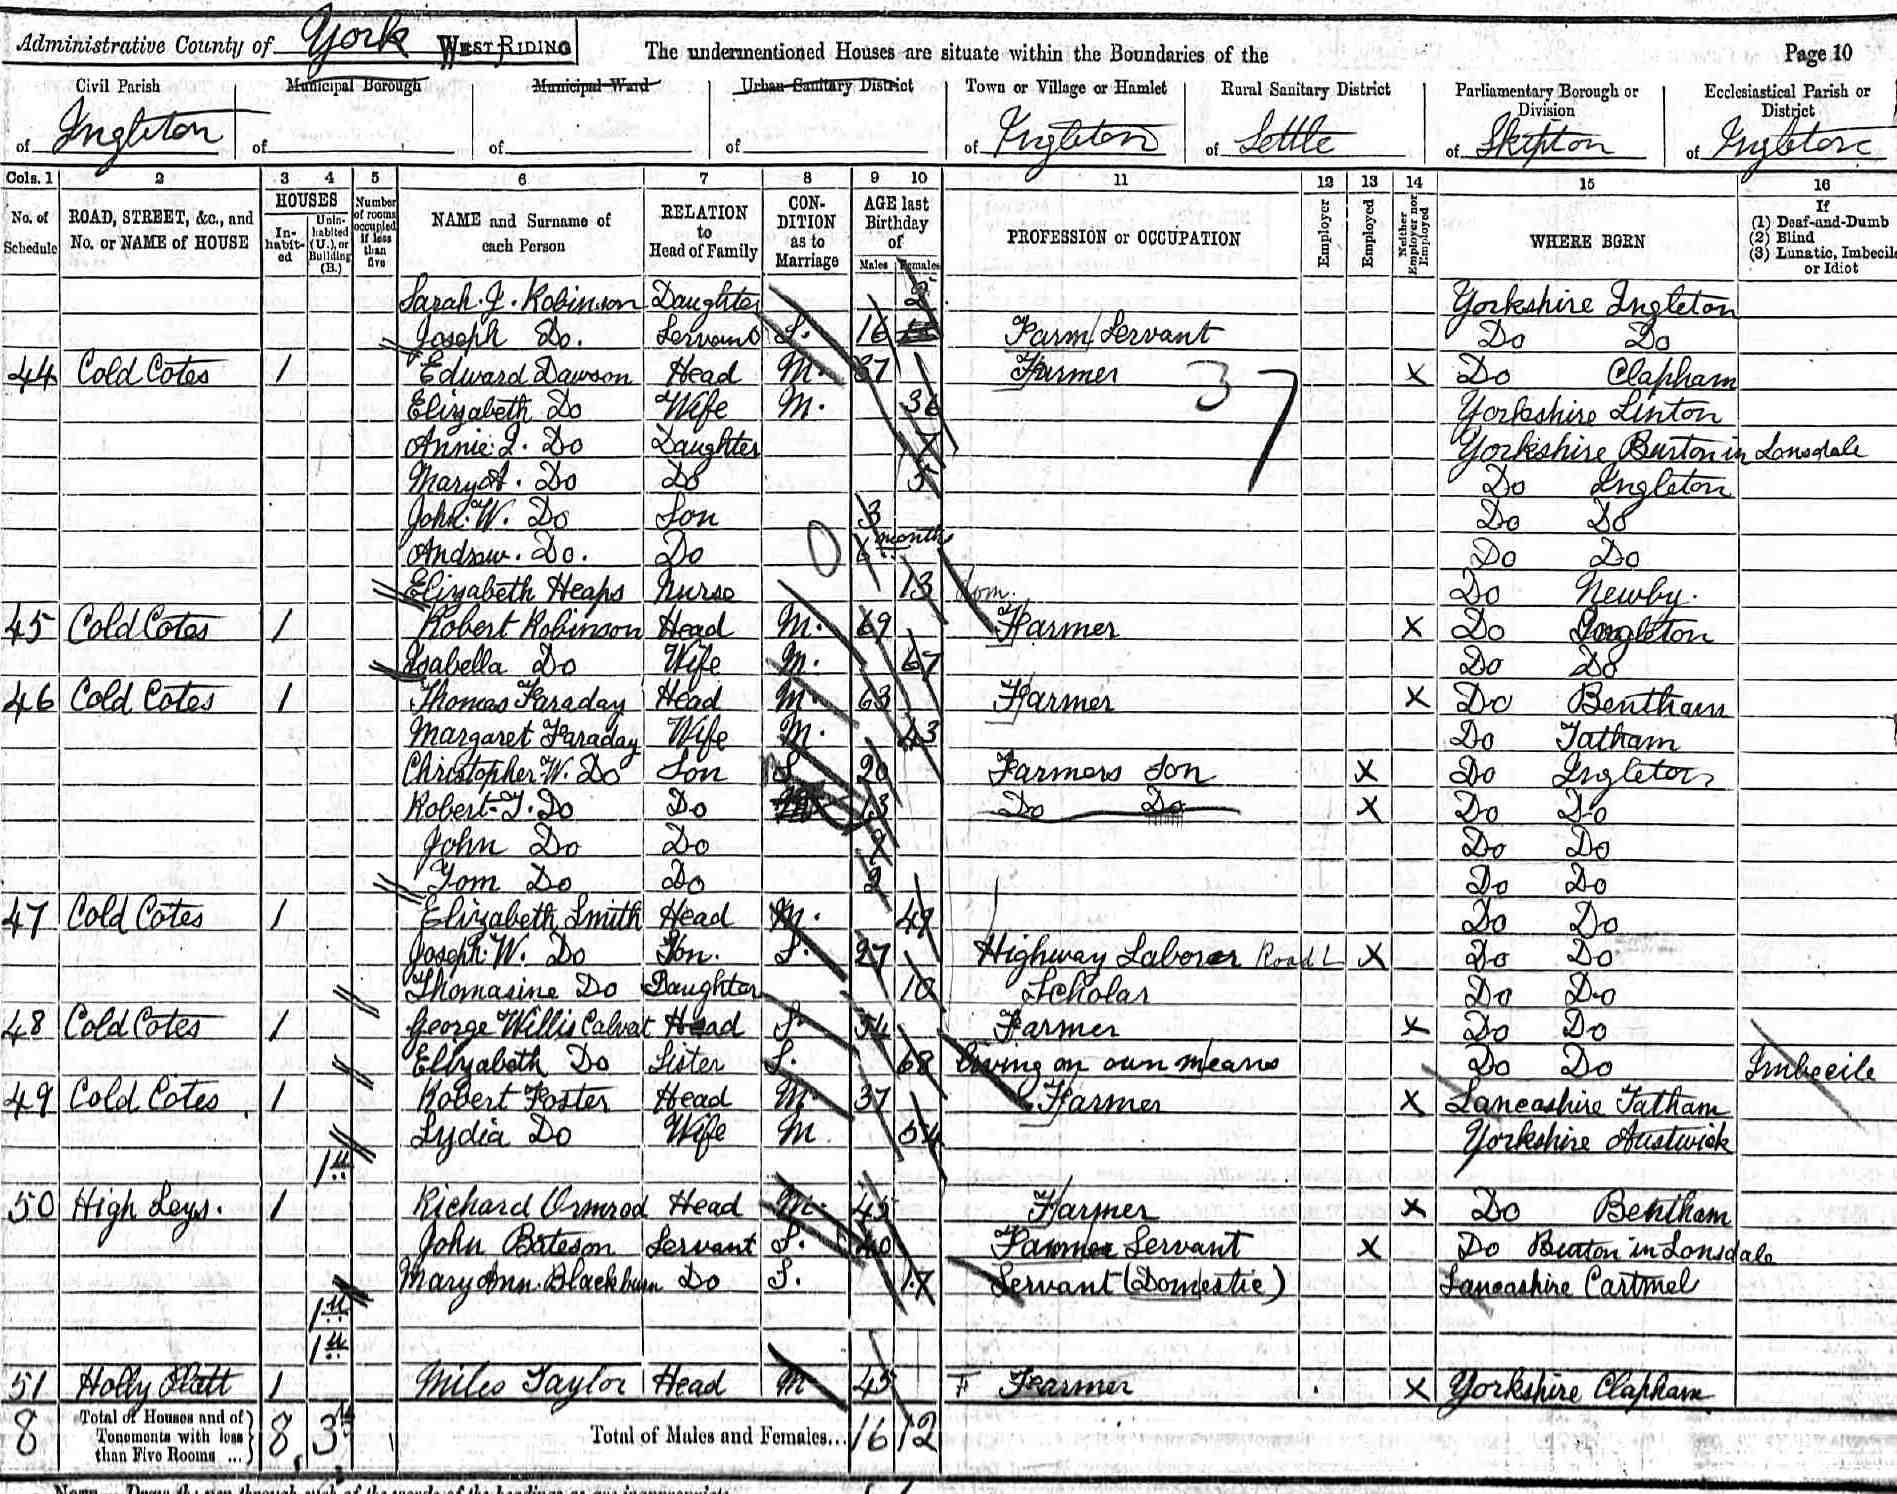 Administrative County of York WEST RIDING The undermentioned Houses are situate within the Boundaries of the Page 10
Civil Parish Municipal Borough Municipal Ward Urban Sanitary District Town or Village or Hamlet Rural Sanitary District Parliamentary Borough or Division Ecclesiastical Parish or District
of Ingleton of of of of Ingleton of Settle of Skipton of Ingleton
Cols. 1 2 3 4 5 6 7 8 9 10 11 12 13 14 15 16
No. of Schedule ROAD, STREET, &c., and No. or NAME of HOUSE HOUSES In-habit-ed Unin-habited (U.), or Building (B.) Number of rooms occupied if less than five NAME and Surname of each Person RELATION to Head of Family CON-DITION as to Marriage AGE last Birthday of Males Females PROFESSION or OCCUPATION Employer Employed Neither Employer nor Employed WHERE BORN If (1) Deaf-and-Dumb (2) Blind (3) Lunatic, Imbecile or Idiot
Sarah J. Robinson Daughter 2 Yorkshire Ingleton
Joseph Do. Servant S. 16 Farm Servant Do Do
44 Cold Cotes 1 Edward Dawson Head M. 37 Farmer X Do Clapham
37
Elizabeth Do Wife M. 36 Yorkshire Linton
Annie I. Do Daughter 7 Yorkshire Burton in Lonsdale
Mary A. Do Do 5 Do Ingleton
John. W. Do Son 3 Do Do
Andrew. Do. Do 0 6 month Do Do
Elizabeth Heaps Nurse 13 Dom. Do Newby.
45 Cold Cotes 1 Robert Robinson Head M. 69 Farmer X Do Ingleton
Isabella Do Wife M. 67 Do Do
46 Cold Cotes 1 Thomas Faraday Head M 63 Farmer X Do Bentham
Margaret Faraday Wife M. 43 Do Tatham
Christopher W. Do Son S 20 Farmers Son X Do Ingleton
Robert. T. Do Do 13 Do Do X Do Do
John Do Do Do Do
Tom Do Do 2 Do Do
47 Cold Cotes 1 Elizabeth Smith Head M. Do Do
Joseph. W. Do Son. S. 27 Highway Laborer Road L X Do Do
Thomasine Do Daughter 10 Scholar Do Do
48 Cold Cotes 1 George Willis Calvert Head S. 54 Farmer X Do Do
Elizabeth Do Sister S. 68 Living on own means Do Do Imbecile
49 Cold Cotes 1 Robert Foster Head M. 37 Farmer X Lancashire Tatham
Lydia Do Wife M 54 Yorkshire Austwick
1u
50 High Leys. 1 Richard Ormrod Head M. 45 Farmer X Do Bentham
John Bateson Servant S. 40 Farmer Servant X Do Burton in Lonsdale
Mary Ann. Blackburn Do S. 17 Servant (Domestic) Lancashire Cartmel
1u
1u
51 Holly Platt 1 Miles Taylor Head M 45 F Farmer X Yorkshire Clapham
8 Total of Houses and of Tenements with less than Five Rooms ... 8 3u Total of Males and Females... 16 12